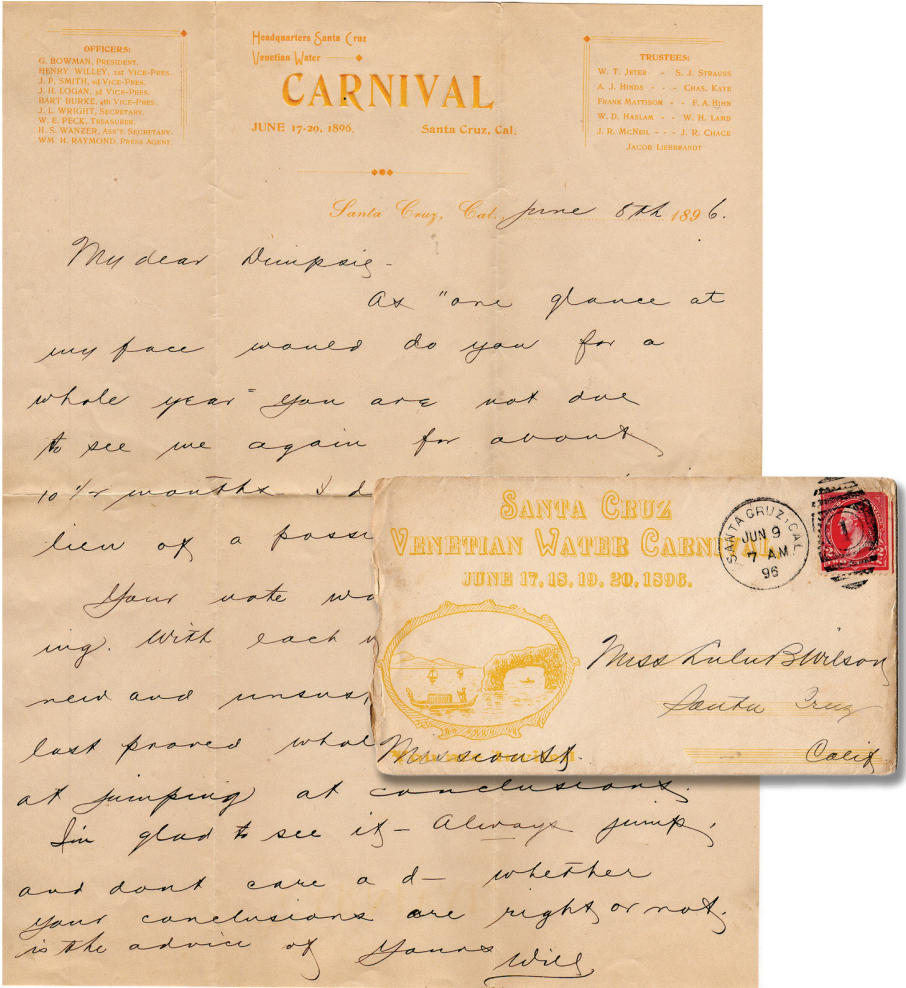 OFFICERS:
G. BOWMAN, PRESIDENT.
HENRY WILLEY, 1ST VICE-PRES.
J. P. SMITH, 2d VICE-PRES.
J. H. LOGAN, 3d VICE-PRES.
BART BURKE, 4th VICE-PRES.
J. L. WRIGHT, SECRETARY.
W. E. PECK, TREASURER.
H. S. WANZER, ASS'T. SECRETARY.
WM. H. RAYMOND, PRESS AGENT.
Headquarters Santa Cruz
Venetian Water
CARNIVAL
JUNE 17-20, 1896. Santa Cruz, Cal.
TRUSTEES:
W. T. JETER - S. J. STRAUSS
A. J. HINDS - - - CHAS. KAYE
FRANK MATTISON - - F. A. HIHN
W. D. HASLAM - - W. H. LAMB
J. R. MCNEIL - - - J. R. CHACE
JACOB LIEBBRANDT
Santa Cruz, Cal. June 8th 1896.
My dear Dimpsie -
As "one glance at
my face would do you for a
whole year" you are not due
to see me again for about
10 1/2 months. I d
lieu of a poss
Your note wo
ing. With each
new and unsus
last proved whol
at jumping at conclusions.
I'm glad to see it - Always jump,
and dont care a d- whether
your conclusions are right or not,
is the advice of Yours
Will
SANTA CRUZ
VENETIAN WATER CARNIVAL
JUNE 17, 18, 19, 20, 1896.
SANTA CRUZ, CAL
JUN 9
7 AM
96
Miss Lulu B Wilson
Santa Cruz
Mission St.
Calif